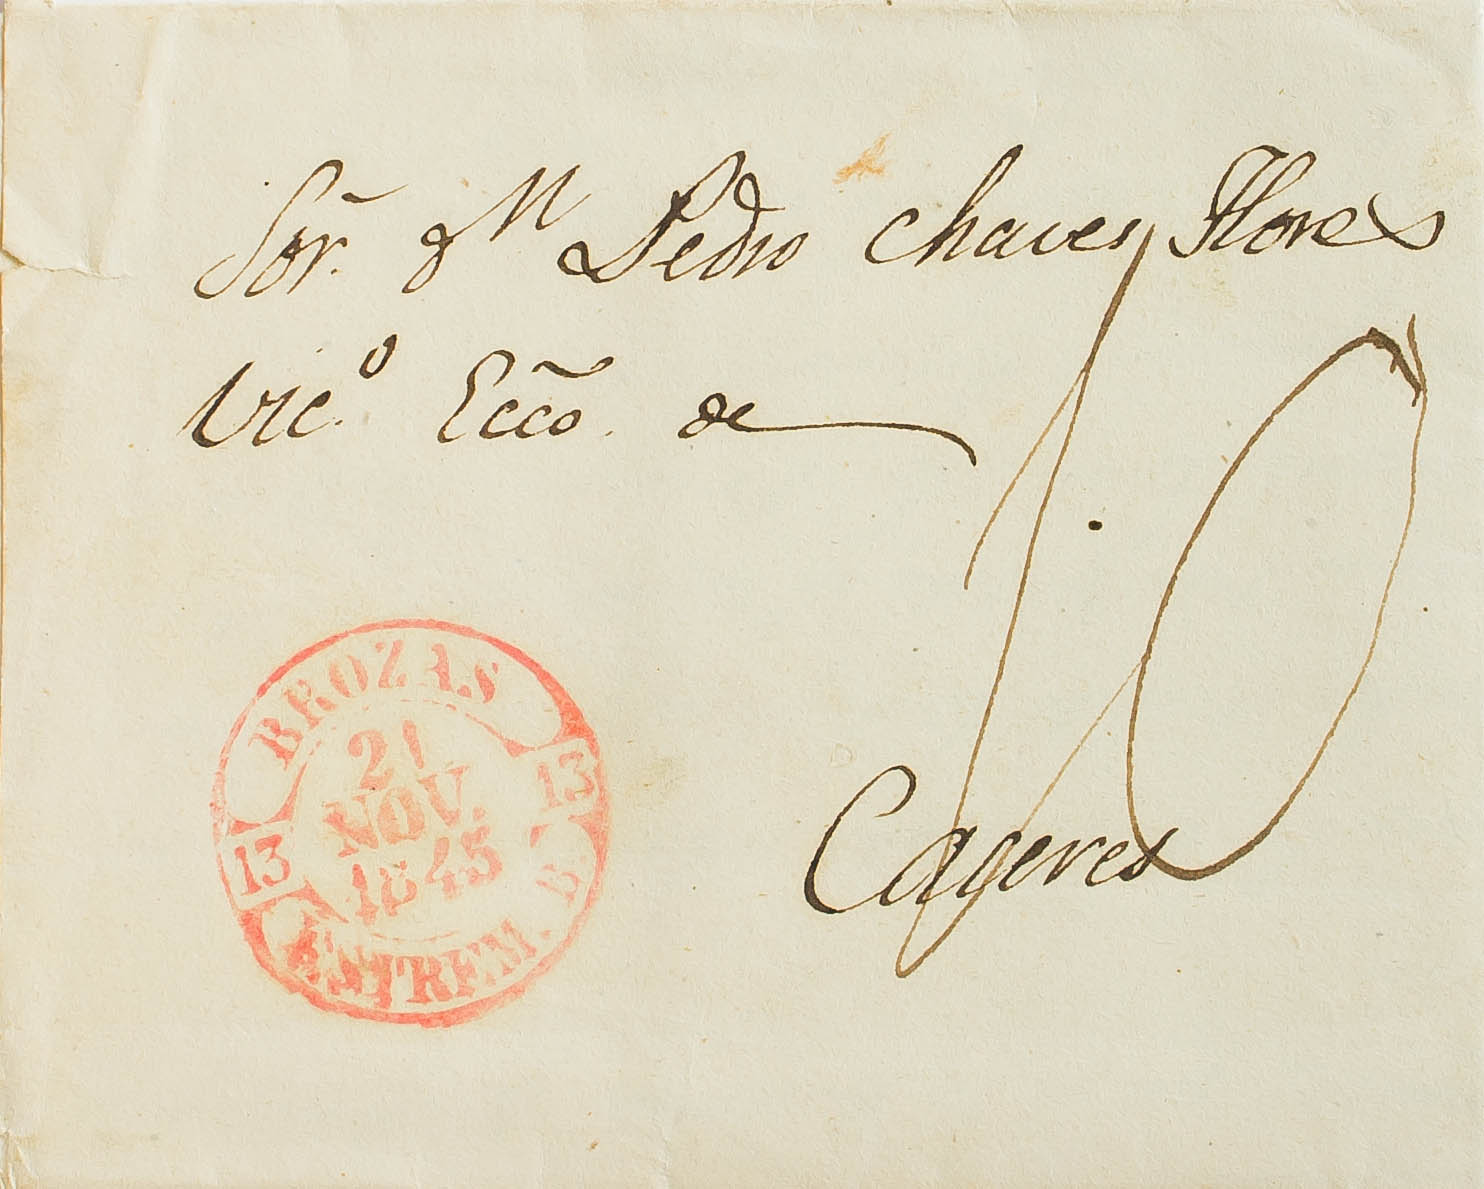 Sor. Dn Pedro Chaves Flores
Vic.º Ecco. de
10
Caceres
BROZAS
21
NOV.
1845
13
13
ESTREM. B.